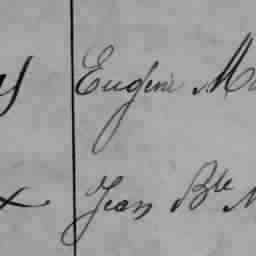 Eugène M
Jean Bte M